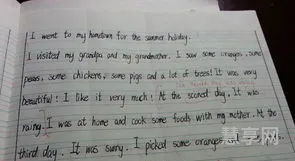 I went to my hometown for the summer holiday.
I visited my grandpa and my grandmother. I saw some oranges, some
peras, some chickens, some pigs and a lot of trees! It was very
beautiful! I like it very much! At the scored day, It was
raing. I was at home and cook some foods with my mother. At the
third day. It was sunny. I picked some oranges
慧享网